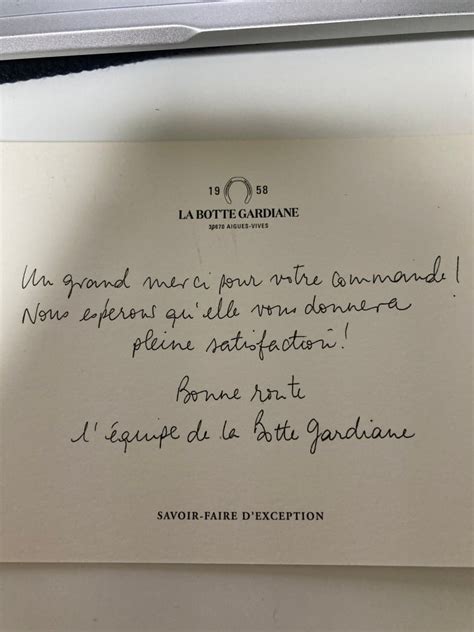 19 58
LA BOTTE GARDIANE
30670 AIGUES-VIVES
Un grand merci pour votre commande !
Nous esperons qu'elle vous donnera
pleine satisfaction !
Bonne route
l'équipe de la Botte Gardiane
SAVOIR-FAIRE D'EXCEPTION